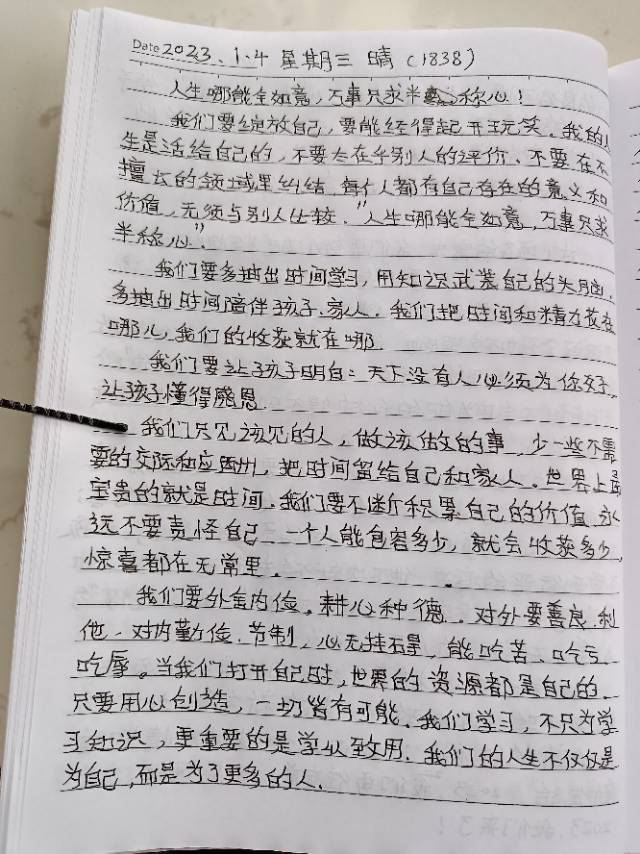 Date 2023.1.4 星期三 晴(1838)
人生哪能全如意,万事只求半称心!
我们要绽放自己,要能经得起开玩笑。我的人
生是活给自己的,不要太在乎别人的评价、不要在不
擅长的领域里纠结,每个人都有自己存在的意义和
价值,无须与别人比较。“人生哪能全如意,万事只求
半称心”。
我们要多抽出时间学习,用知识武装自己的头脑,
多抽出时间陪伴孩子、家人。我们把时间和精力花在
哪儿,我们的收获就在哪
我们要让孩子明白:天下没有人必须为你好,
让孩子懂得感恩
我们只见该见的人,做该做的事 少一些不需
要的交际和应酬,把时间留给自己和家人。世界上最
宝贵的就是时间。我们要不断积累自己的价值,永
远不要责怪自己 一个人能包容多少,就会收获多少,
惊喜都在无常里。
我们要外圆内俭。耕心种德。对外要善良、利
他、对内勤俭、节制,心无挂碍,能吃苦、吃亏
吃辱。当我们打开自己时,世界的资源都是自己的。
只要用心创造,一切皆有可能。我们学习,不只为学
习知识,更重要的是学以致用。我们的人生不仅仅是
为自己,而是为了更多的人.